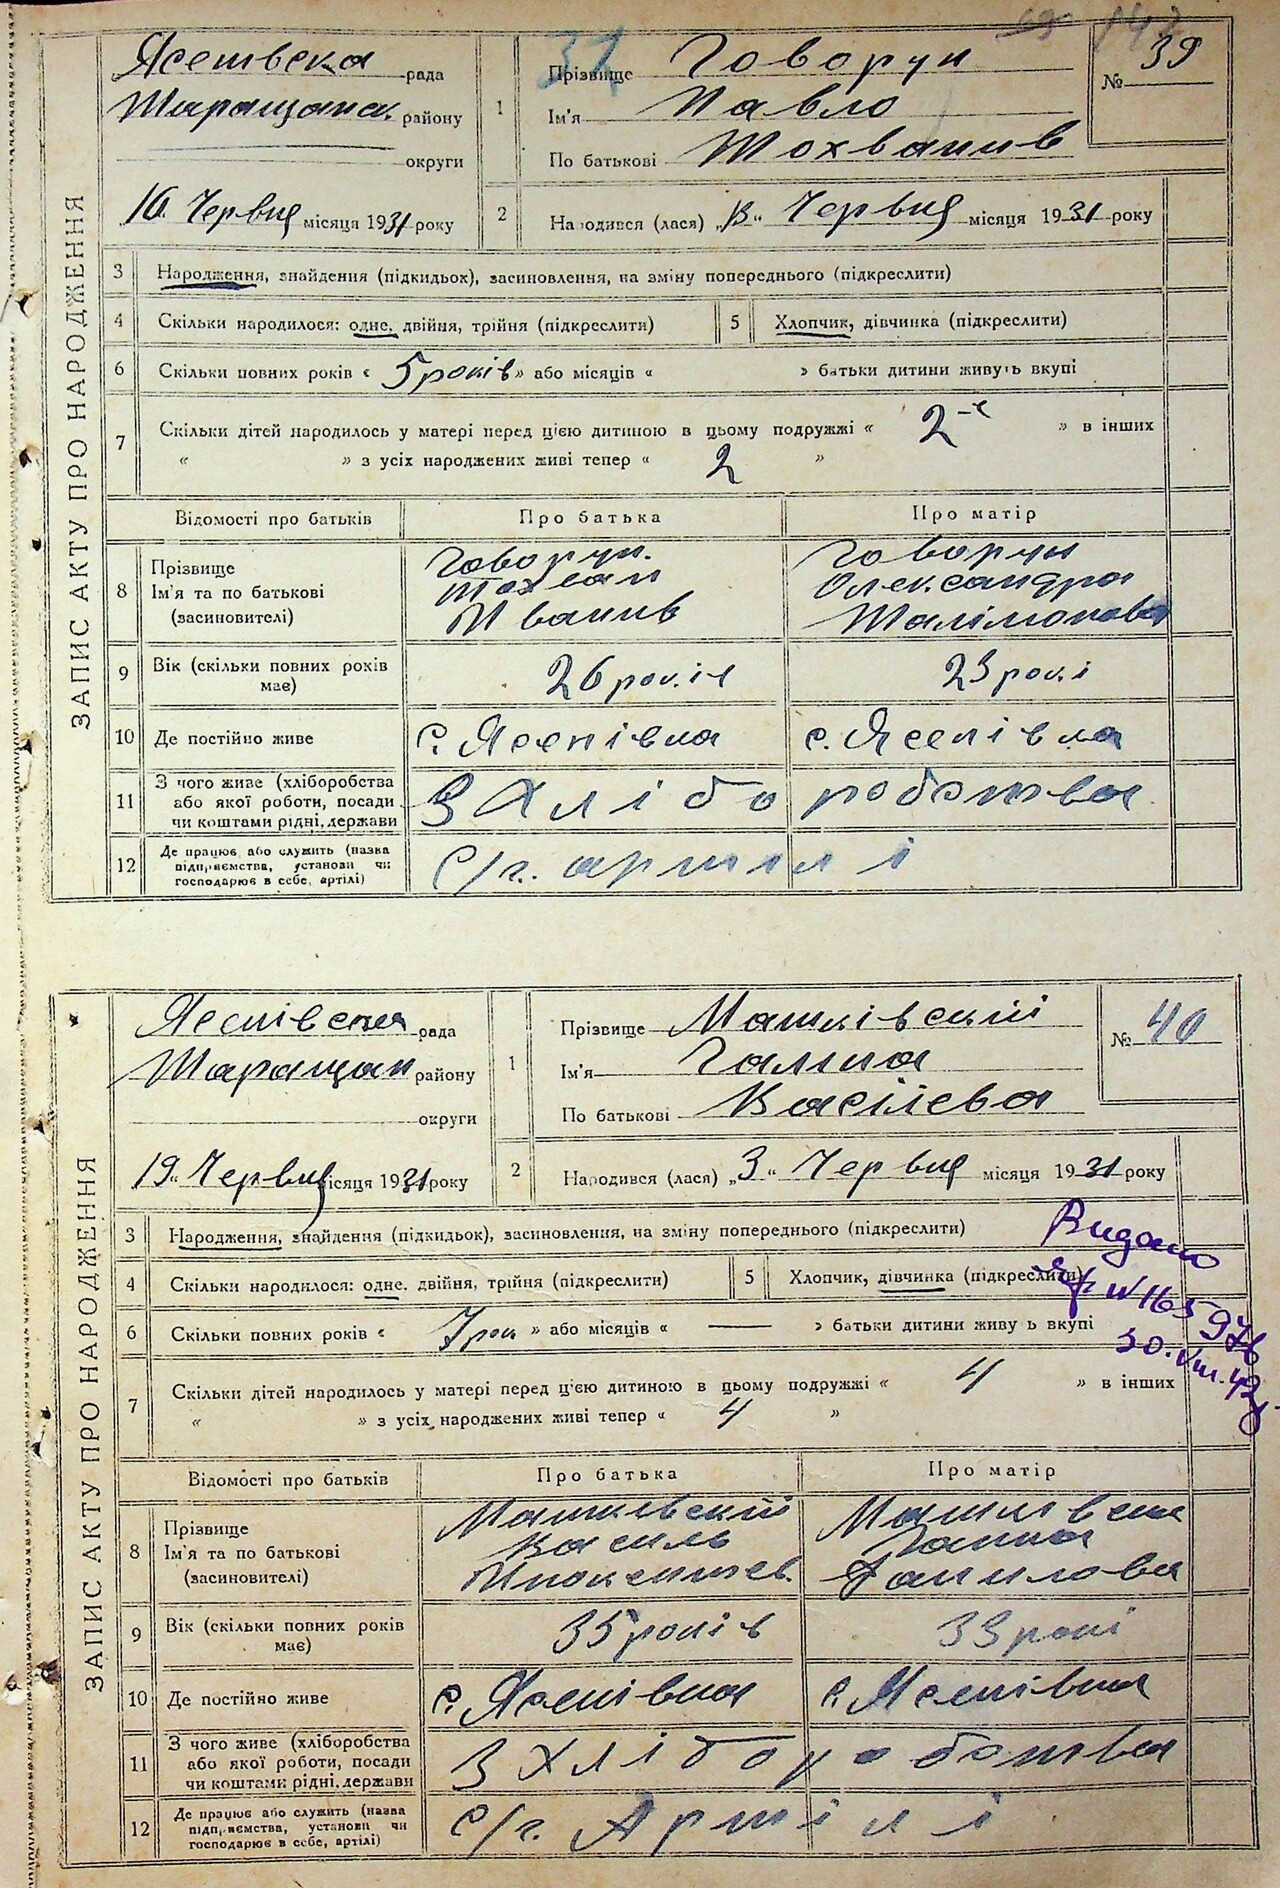 ЗАПИС АКТУ ПРО НАРОДЖЕННЯ
рада
Таращанск. району
округи
16. Червця місяця 1931 року
1
Прізвище Говорун
Ім'я Павло
По батькові
№ 39
2
Народився (лася) „ “ Червця місяця 1931 року
3 Народження, знайдення (підкидьок), засиновлення, на зміну попереднього (підкреслити)
4 Скільки народилося: одне, двійня, трійня (підкреслити)
5 Хлопчик, дівчинка (підкреслити)
6 Скільки повних років « 5 років » або місяців « » батьки дитини живуть вкупі
7 Скільки дітей народилось у матері перед цією дитиною в цьому подружжі « 2-е » в інших
« » з усіх народжених живі тепер « 2 »
Відомості про батьків
Про батька
Про матір
8 Прізвище
Ім'я та по батькові
(засиновителі)
Говорун
Іванив
Говорун
Олександра
9 Вік (скільки повних років має)
26 років
23 рокі
10 Де постійно живе
с. Ясенівка
с. Ясенівка
11 З чого живе (хліборобства або якої роботи, посади чи коштами рідні, держави
З Хліборобства
12 Де працює або служить (назва підприємства, установи чи господарює в себе, артілі)
С/г. артилі
ЗАПИС АКТУ ПРО НАРОДЖЕННЯ
Ясенівська рада
Таращан району
округи
19 „ Червця місяця 1931 року
1
Прізвище Машківский
Ім'я Галина
По батькові Васілева
№ 40
2
Народився (лася) „3“ Червця місяця 1931 року
3 Народження, знайдення (підкидьок), засиновлення, на зміну попереднього (підкреслити)
4 Скільки народилося: одне, двійня, трійня (підкреслити)
5 Хлопчик, дівчинка (підкреслити)
Видано
№ 165976
30.VIII.42
6 Скільки повних років « 7 рок » або місяців « — » батьки дитини живуть вкупі
7 Скільки дітей народилось у матері перед цією дитиною в цьому подружжі « 4 » в інших
« » з усіх народжених живі тепер « 4 »
Відомості про батьків
Про батька
Про матір
8 Прізвище
Ім'я та по батькові
(засиновителі)
Машкивский
Василь
Инокентіев.
Ганна
Данилова
9 Вік (скільки повних років має)
35 років
33 рокі
10 Де постійно живе
с. Ясенівка
с. Ясенівка
11 З чого живе (хліборобства або якої роботи, посади чи коштами рідні, держави
З Хлібороботва
12 Де працює або служить (назва підприємства, установи чи господарює в себе, артілі)
С/г. Артілі